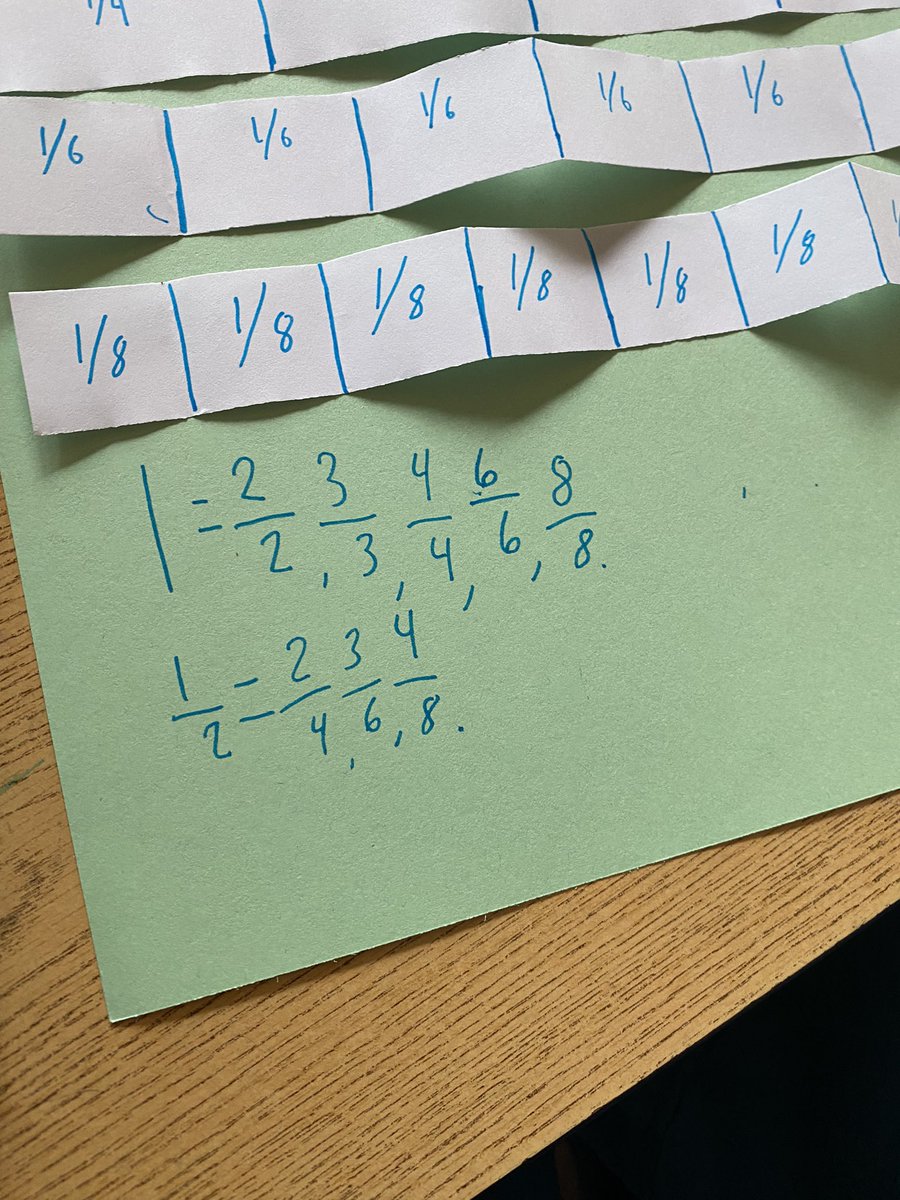 1/4
1/6 1/6 1/6 1/6 1/6
1/8 1/8 1/8 1/8 1/8 1/8
1 = 2/2, 3/3, 4/4, 6/6, 8/8.
1/2 = 2/4, 3/6, 4/8.